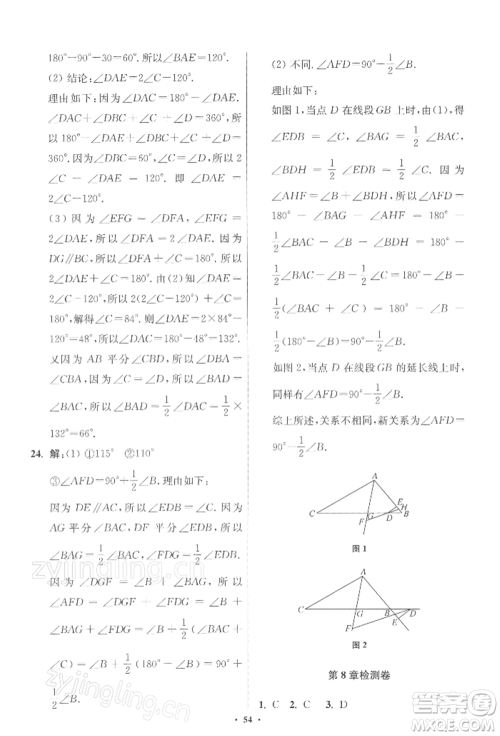 180°－90°－30＝60°. 所以∠BAE＝120°.
(2) 结论：∠DAE＝2∠C－120°.
理由如下：∠DAC＝180°－∠DAE，
∠DAC＋∠DBC＋∠C＋∠D＝360°，所以180°－∠DAE＋
∠DBC＋∠C＋∠D＝
360°. 又∠DBC＝60°，所以2
∠C－∠DAE＝120°. 即∠DAE
＝2∠C－120°.
(3) 因为∠EFG＝∠DFA，∠EFG＝
2∠DAE，所以∠DFA＝2∠DAE. 因为
DG∥BC，所以∠DFA＋∠C＝180°. 所以
2∠DAE＋∠C＝180°. 由(2)知∠DAE＝
2∠C－120°，所以2(2∠C－120°)＋∠C＝
180°，解得∠C＝84°. 所以∠DAE＝168°－
120°＝48°，所以∠DAC＝180°－48°＝132°.
又因为 AB 平分∠CBD，所以∠DBA＝
1/2∠DAC＝1/2×
132°＝66°.
24. 解：(1) ①115° ②110°
③∠AFD＝90°＋1/2∠B. 理由如下：
因为 DE∥AC，所以∠EDB＝∠C. 因为
AG 平分∠BAC，DF 平分∠EDB，所以
∠BAG＝1/2∠BAC，∠FDG＝1/2∠EDB.
因为∠DGF＝∠B＋∠BAG，所以
∠AFD＝∠DGF＋∠FDG＝∠B＋
∠BAG＋∠FDG＝∠B＋1/2(∠BAC＋
∠C)＝∠B＋1/2(180°－∠B)＝90°＋1/2∠B.
(2) 不同. ∠AFD＝90°－1/2∠B.
理由如下：
如图 1，当点 D 在线段 GB 上时，可得
∠EDB＝∠C，∠BAG＝1/2∠BAC，
∠BDH＝1/2∠EDB＝1/2∠C. 因为
∠AHF＝∠B＋∠BDH，所以∠AFD＝
180°－∠BAG－∠AHF＝180°－
1/2∠BAC－∠B－∠BDH＝180°－
1/2∠BAC－∠B－1/2∠C＝180°－∠B－
1/2(∠BAC＋∠C)＝180°－∠B－
1/2(180°－∠B)＝90°－1/2∠B.
如图 2，当点 D 在线段 GB 的延长线上时，
同样有∠AFD＝90°－1/2∠B.
综上所述，关系不相同，∠AFD＝
90°－1/2∠B.
A
C
G
D
B
F
图 1
A
C
G
B
D
E
F
图 2
第 8 章检测卷
1. C 2. C 3. D
· 54 ·
zyjingling.com